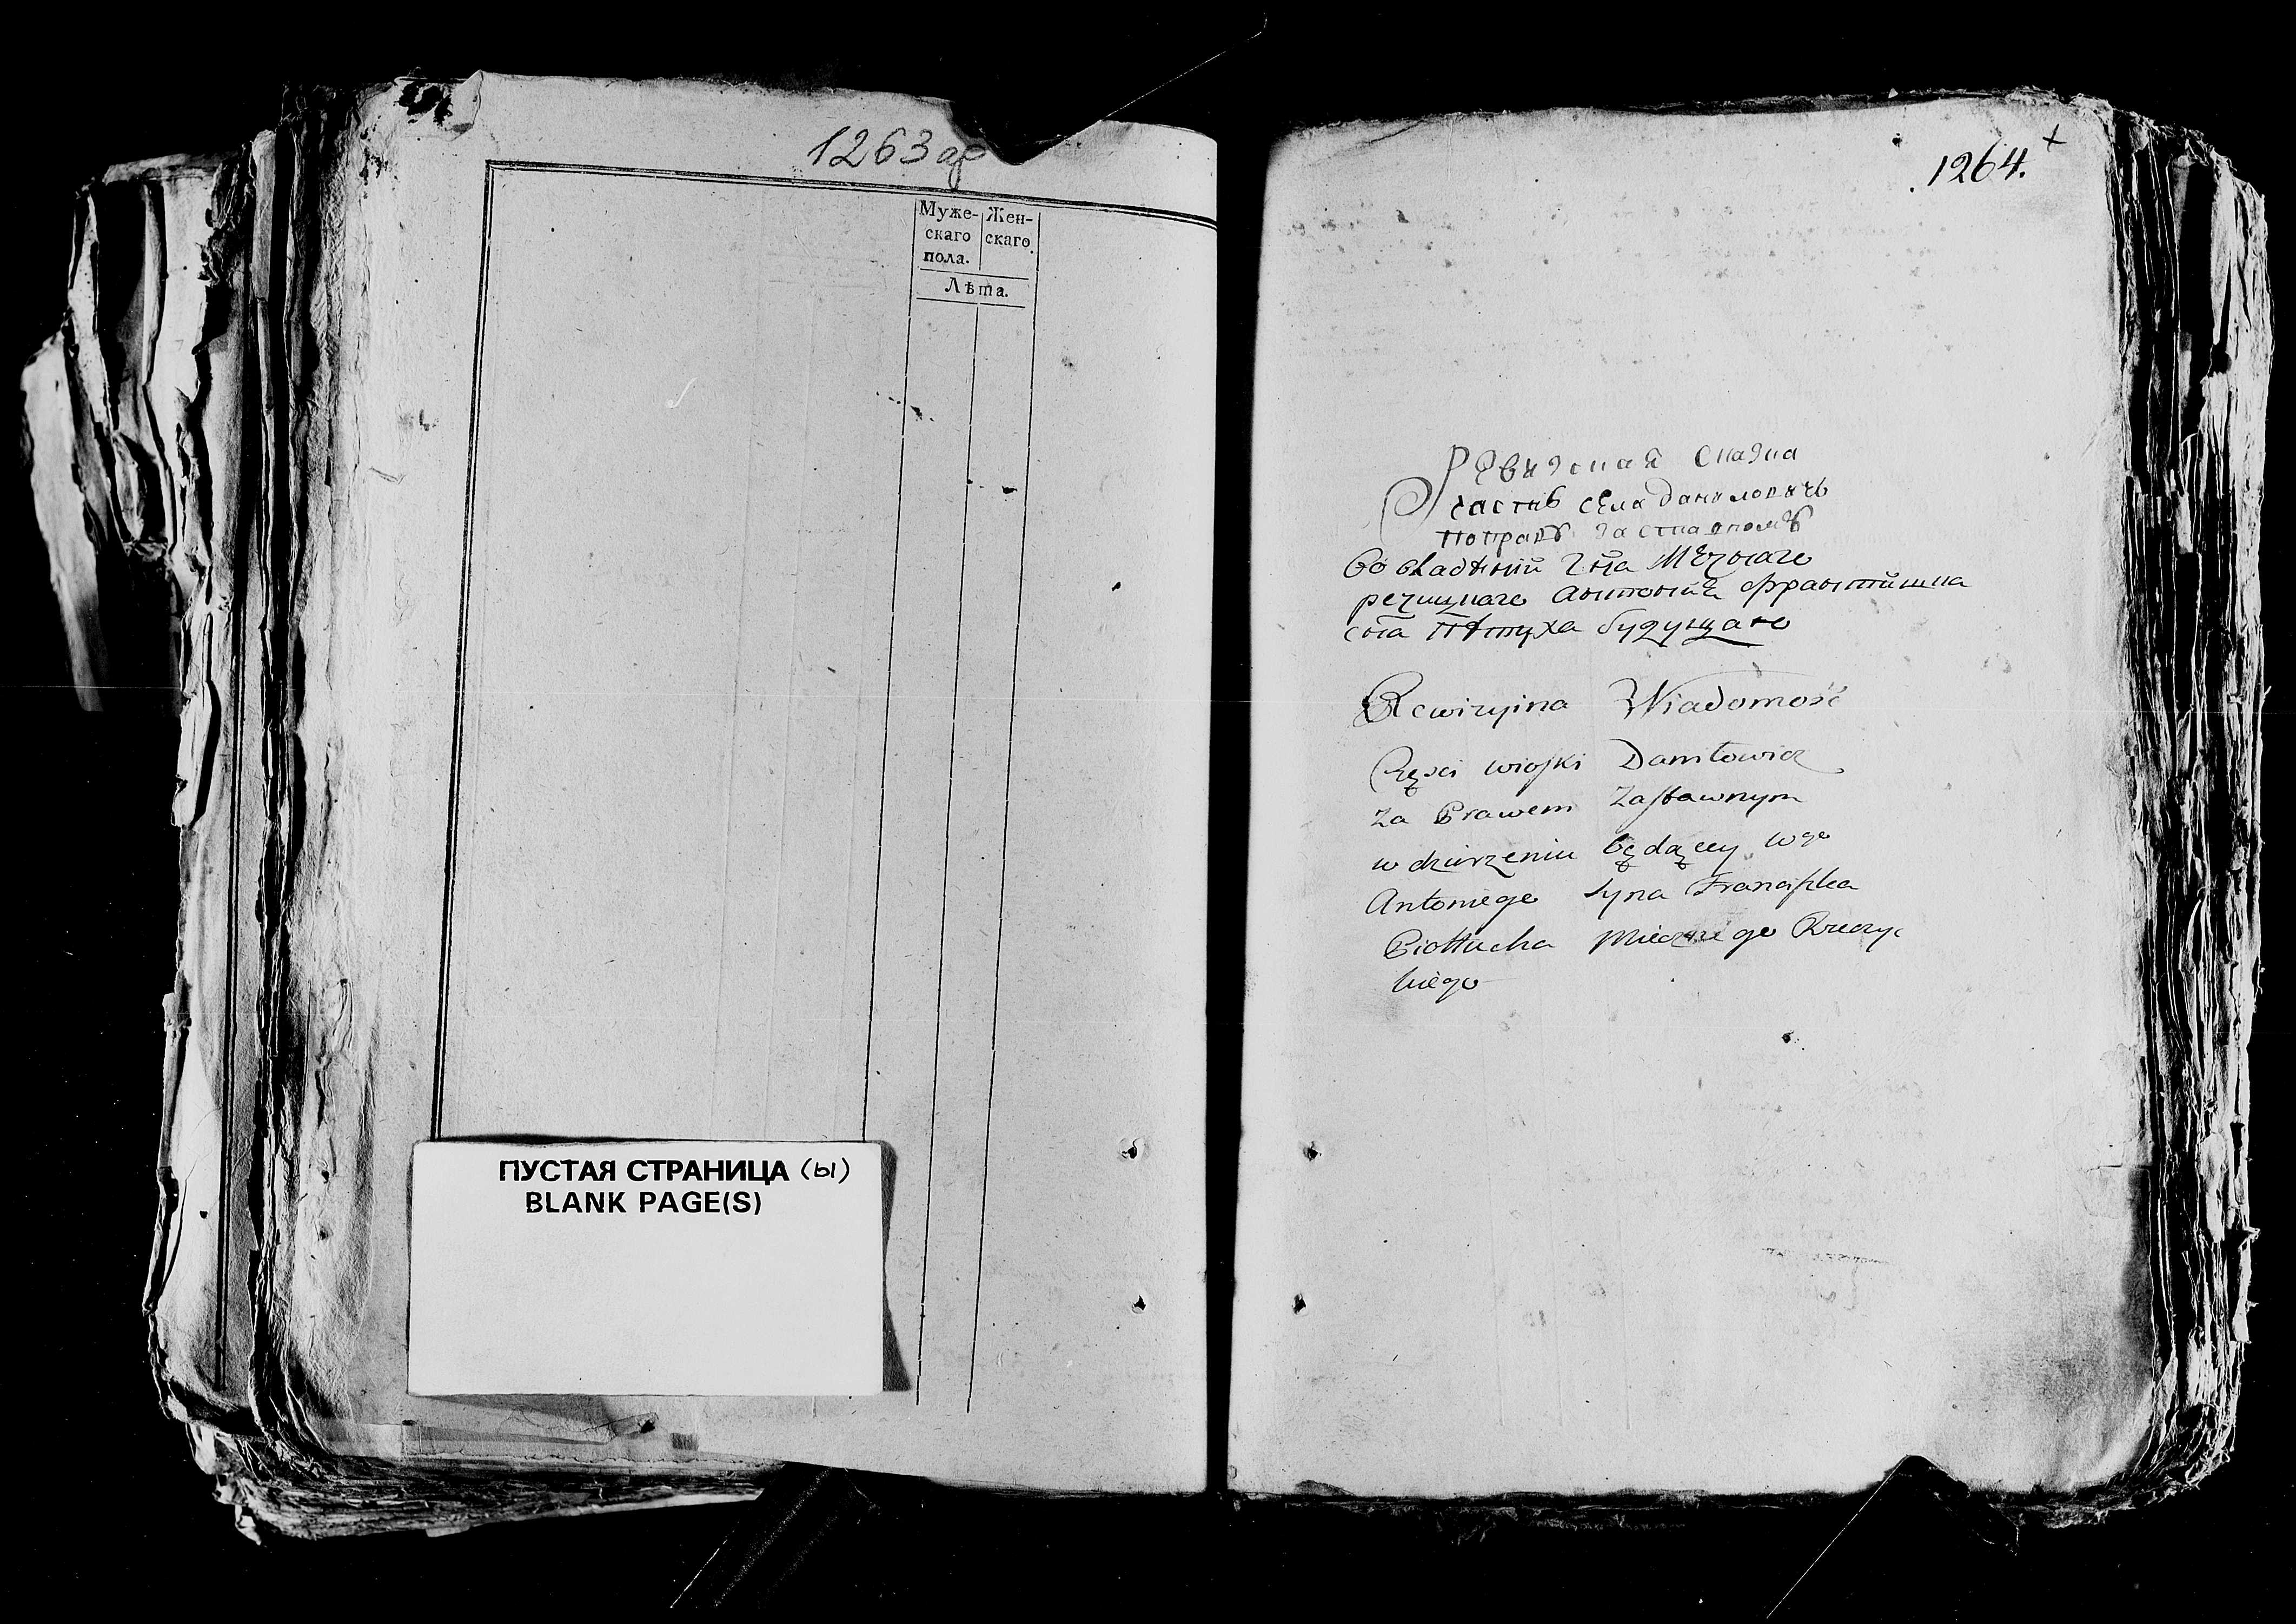 1263 об
Муже-
скаго
пола.
Жен-
скаго.
Лѣта.
ПУСТАЯ СТРАНИЦА (ы)
BLANK PAGE(S)
1264.
Ревизская сказка
часть села Даниловичъ
по правѣ заставномъ
во владѣнии Гна Мечнаго
речицкаго Антонія Франтишка
сна Пётуха будущаго
Rewizyina Wiadomość
Częsci wioski Daniłowicz
za Prawem Zastawnym
w dzierzeniu będącey Wgo
Antoniego syna Franciszka
Piottucha Miecznego Rzeczyc
kiego